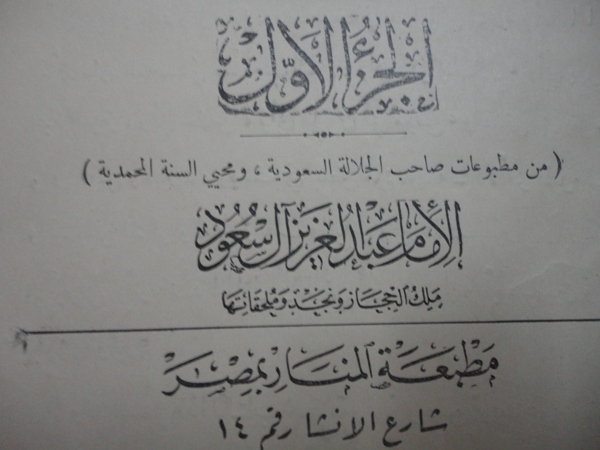 الجزء الأوّل
( من مطبوعات صاحب الجلالة السعودية ، ومحيي السنة المحمدية )
الإمام عبد العزيز آل سعود
ملك الحجاز ونجد وملحقاتها
مطبعة المنار بمصر
شارع الانشا رقم ١٤